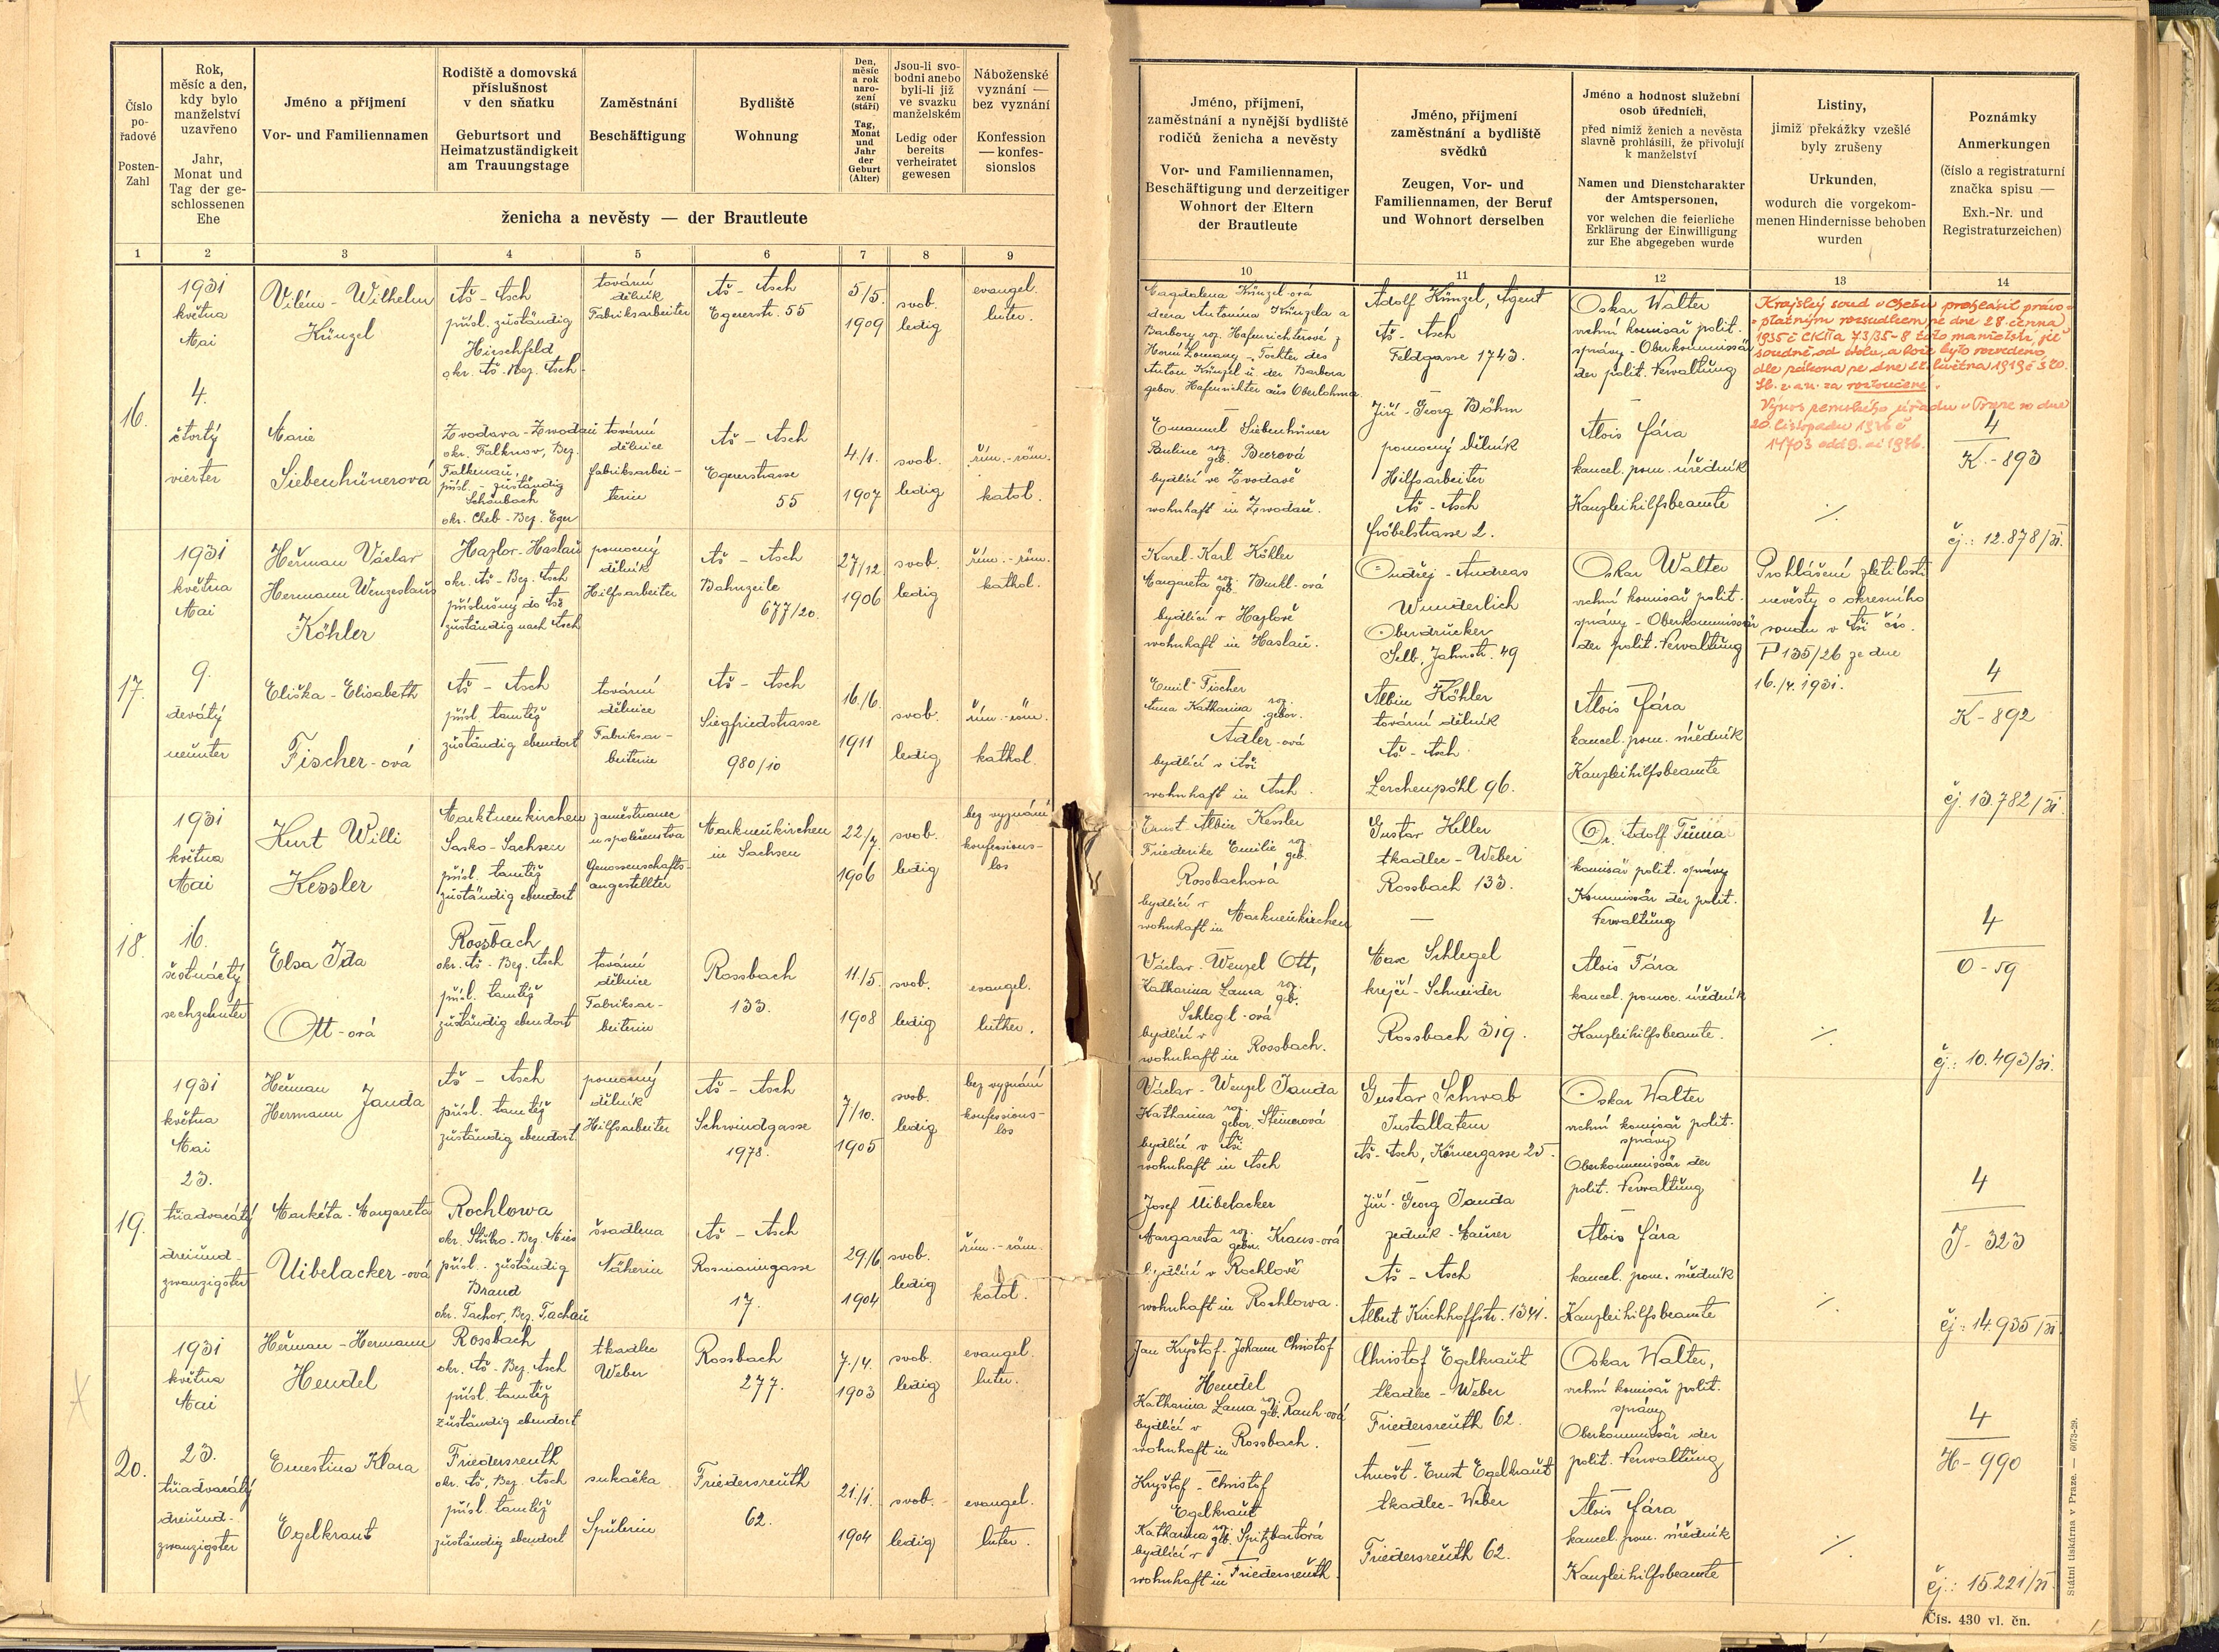 Číslo
po-
řadové
Posten-
Zahl
Rok,
měsíc a den,
kdy bylo
manželství
uzavřeno
Jahr,
Monat und
Tag der ge-
schlossenen
Ehe
Jméno a příjmení
Vor- und Familiennamen
Rodiště a domovská
příslušnost
v den sňatku
Geburtsort und
Heimatzuständigkeit
am Trauungstage
Zaměstnání
Beschäftigung
Bydliště
Wohnung
Den,
měsíc
a rok
naro-
zení
(stáří)
Tag,
Monat
und
Jahr
der
Geburt
(Alter)
Jsou-li svo-
bodni anebo
byli-li již
ve svazku
manželském
Ledig oder
bereits
verheiratet
gewesen
Náboženské
vyznání —
bez vyznání
Konfession
— konfes-
sionslos
ženicha a nevěsty — der Brautleute
Jméno, příjmení,
zaměstnání a nynější bydliště
rodičů ženicha a nevěsty
Vor- und Familiennamen,
Beschäftigung und derzeitiger
Wohnort der Eltern
der Brautleute
Jméno, příjmení
zaměstnání a bydliště
svědků
Zeugen, Vor- und
Familiennamen, der Beruf
und Wohnort derselben
Jméno a hodnost služební
osob úředních,
před nimiž ženich a nevěsta
slavně prohlásili, že přivolují
k manželství
Namen und Dienstcharakter
der Amtspersonen,
vor welchen die feierliche
Erklärung der Einwilligung
zur Ehe abgegeben wurde
Listiny,
jimiž překážky vzešlé
byly zrušeny
Urkunden,
wodurch die vorgekom-
menen Hindernisse behoben
wurden
Poznámky
Anmerkungen
(číslo a registraturní
značka spisu —
Exh.-Nr. und
Registraturzeichen)
1 2 3 4 5 6 7 8 9 10 11 12 13 14
16.
1931
května
Mai
4.
čtvrtý
vierter
Vilém - Wilhelm
Künzel
Aš - Asch
přísl. zuständig
Hirschfeld
okr. Aš - Bez. Asch
tovární
dělník
Fabriksarbeiter
Aš - Asch
Egererstr. 55
5/5.
1909
svob.
ledig
evangel.
luter.
Magdalena Künzel-ová
dcera Antonína Künzela a
Barbory roz. Hafenrichterové z
Horní Lomany - Tochter des
Anton Künzel u. der Barbora
gebor. Hafenrichter aus Oberlohma
Adolf Künzel, Agent
Aš - Asch
Feldgasse 1743.
Oskar Walter
vrchní komisař polit.
správy - Oberkommissär
der polit. Verwaltung
Krajský soud v Chebu prohlásil právo-
platným rozsudkem ze dne 28. června
1935 č CKIIa 73/35-8 toto manželství, jež
soudně od stolu a lože bylo rozvedeno
dle zákona ze dne 22. května 1919 č 320.
Sb. z. a n. za rozloučené.
Výnos zemského úřadu v Praze ze dne
20. listopadu 1936 č
14703 odd 9. ai 1936.
Marie
Siebenhünerová
Zvodava - Zwodau
okr. Falknov, Bez.
Falkenau,
přísl. - zuständig
Schönbach
okr. Cheb - Bez. Eger
tovární
dělnice
Fabriksarbei-
terin
Aš - Asch
Egererstrasse
55
4./1.
1907
svob.
ledig
řím. - röm.
katol.
Emanuel Siebenhüner
Pauline roz. geb. Beerová
bydlící ve Zvodavě
wohnhaft in Zwodau.
Jiří - Georg Böhm
pomocný dělník
Hilfsarbeiter
Aš - Asch
Fröbelstrasse 2.
Alois Fára
kancel. pom. úředník
Kanzleihilfsbeamte
./.
4
K. - 893
čj.: 12.878/31.
17.
1931
května
Mai
9.
devátý
neunter
Heřman Václav
Hermann Wenzeslaus
Köhler
Hazlov - Haslau
okr. Aš - Bez. Asch
příslušný do Aše
zuständig nach Asch
pomocný
dělník
Hilfsarbeiter
Aš - Asch
Bahnzeile
677/20.
27/12
1906
svob.
ledig
řím. - röm.
kathol.
Karel - Karl Köhler
Margareta roz. geb. Burkl-ová
bydlící v Hazlově
wohnhaft in Haslau.
Ondřej - Andreas
Wunderlich
Oberdrucker
Selb, Jahnstr. 49
Oskar Walter
vrchní komisař polit.
správy - Oberkommissär
der polit. Verwaltung
Prohlášení zletilosti
nevěsty o okresního
soudu v Aši čís.
P 135/26 ze dne
16./4. 1931.
Eliška - Elisabeth
Fischer-ová
Aš - Asch
přísl. tamtéž
zuständig ebendort
tovární
dělnice
Fabriksar-
beiterin
Aš - Asch
Siegfriedstrasse
980/10
16./6.
1911
svob.
ledig
řím. - röm.
kathol.
Emil Fischer
Anna Katharina roz. gebor.
Adler-ová
bydlící v Aši
wohnhaft in Asch.
Albin Köhler
tovární dělník
Aš - Asch
Lerchenpöhl 96.
Alois Fára
kancel. pom. úředník
Kanzleihilfsbeamte
4
K - 892
čj. 13.782/31.
18.
1931
května
Mai
16.
šestnáctý
sechzehnter
Kurt Willi
Kessler
Marktneukirchen
Sasko - Sachsen
přísl. tamtéž
zuständig ebendort
zaměstnanec
u společenstva
Genossenschafts-
angestellter
Markneukirchen
in Sachsen
22/7.
1906
svob.
ledig
bez vyznání
konfessions-
los
Ernst Albin Kessler
Friederike Emilie roz. geb.
Rossbachová
bydlící v
wohnhaft in Markneukirchen
Gustav Heller
tkadlec - Weber
Rossbach 133.
Dr. Adolf Tůma
komisař polit. správy
Kommissär der polit.
Verwaltung
Elsa Ida
Ott-ová
Rossbach
okr. Aš - Bez. Asch
přísl. tamtéž
zuständig ebendort
tovární
dělnice
Fabriksar-
beiterin
Rossbach
133.
11./5.
1908
svob.
ledig
evangel.
luther.
Václav - Wenzel Ott,
Katharina Laura roz. geb.
Schlegl-ová
bydlící v
wohnhaft in Rossbach.
Max Schlegel
krejčí - Schneider
Rossbach 319.
Alois Fára
kancel. pomoc. úředník
Kanzleihilfsbeamte.
./.
4
O - 59
čj.: 10.493/31.
19.
1931
května
Mai
23.
třiadvacátý
dreiund-
zwanzigster
Heřman
Hermann Janda
Aš - Asch
přísl. tamtéž
zuständig ebendort
pomocný
dělník
Hilfsarbeiter
Aš - Asch
Schwindgasse
1978.
7/10.
1905
svob.
ledig
bez vyznání
konfessions-
los
Václav - Wenzel Janda
Katharina roz. gebor. Steinerová
bydlící v Aši
wohnhaft in Asch
Gustav Schwab
Installateur
Aš - Asch, Körnergasse 25.
Oskar Walter
vrchní komisař polit.
správy
Oberkommissär der
polit. Verwaltung
Markéta - Margareta
Uibelacker-ová
Rochlowa
okr. Stříbro - Bez. Mies
přísl. - zuständig
Brand
okr. Tachov, Bez. Tachau
švadlena
Näherin
Aš - Asch
Rosmaringasse
17.
29/6
1904
svob.
ledig
řím. - röm.
katol.
Josef Uibelacker
Margareta roz. gebor. Kraus-ová
bydlící v Rochlově
wohnhaft in Rochlowa.
Jiří - Georg Janda
zedník - Maurer
Aš - Asch
Albert Kirchhoffstr. 1341.
Alois Fára
kancel. pom. úředník
Kanzleihilfsbeamte
./.
4
J - 323
čj.: 14.935/31.
20.
1931
května
Mai
23.
třiadvacátý
dreiund-
zwanzigster
Heřman - Hermann
Hendel
Rossbach
okr. Aš - Bez. Asch
přísl. tamtéž
zuständig ebendort
tkadlec
Weber
Rossbach
277.
7./4.
1903
svob.
ledig
evangel.
luter.
Jan Kryštof - Johann Christof
Hendel
Katharina Laura roz. geb. Rauh-ová
bydlící v
wohnhaft in Rossbach.
Christof Egelkraut
tkadlec - Weber
Friedersreuth 62.
Oskar Walter,
vrchní komisař polit.
správy
Oberkommissär der
polit. Verwaltung
Ernestina Klara
Egelkraut
Friedersreuth
okr. Aš, Bez. Asch
přísl. tamtéž
zuständig ebendort
sukačka
Spulerin
Friedersreuth
62.
21./1.
1904
svob.
ledig
evangel.
luter.
Kryštof - Christof
Egelkraut
Katharina roz. geb. Spitzbartová
bydlící v
wohnhaft in Friedersreuth.
Arnošt - Ernst Egelkraut
tkadlec - Weber
Friedersreuth 62.
Alois Fára
kancel. pom. úředník
Kanzleihilfsbeamte
./.
4
H - 990
čj.: 15.221/31.
Státní tiskárna v Praze. — 6073-29.
Čís. 430 vl. čn.